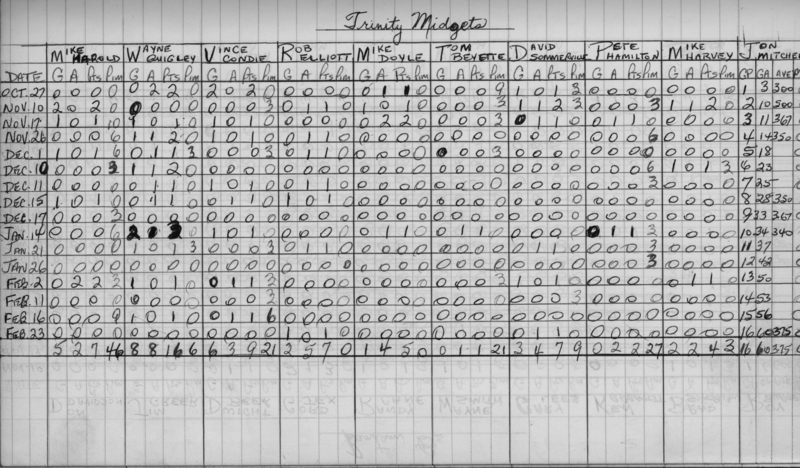 Trinity Midgets
MIKE WAYNE VINCE ROB MIKE TOM DAVID PETE MIKE JON
HAROLD QUIGLEY CONDIE ELLIOTT DOYLE BEYETTE SOMMERVILLE HAMILTON HARVEY MITCHE
DATE G A Pts Pim G A Pts Pim G A Pts Pim G A Pts Pim G A Pts Pim G A Pts Pim G A Pts Pim G A Pts Pim G A Pts Pim GP GA AVE
OCT. 27 0 0 0 0 0 2 2 0 2 0 2 0 0 0 0 0 0 1 1 0 0 0 0 9 1 0 1 3 0 0 0 0 0 0 0 0 1 3 300
NOV. 10 2 0 2 0 0 0 0 0 0 0 0 3 0 1 1 0 1 0 1 0 0 0 0 3 1 1 2 3 0 0 0 3 1 1 2 0 2 10 500
NOV. 17 1 0 1 0 1 0 1 0 1 0 1 0 0 0 0 0 0 2 2 0 0 0 0 3 0 1 1 0 0 1 1 0 0 0 0 0 3 11 367
NOV. 26 0 0 0 6 1 1 2 0 1 0 1 0 0 1 1 0 0 0 0 0 0 0 0 0 0 0 0 0 0 0 0 6 0 0 0 0 4 14 350
DEC. 1 1 0 1 6 0 1 1 3 0 0 0 3 0 1 1 0 0 0 0 0 0 0 0 3 0 0 0 3 0 0 0 0 0 0 0 0 5 18
DEC. 10 0 0 0 3 1 1 2 0 0 0 0 0 0 0 0 0 0 0 0 0 0 0 0 0 0 0 0 0 0 0 0 6 1 0 1 3 6 23
DEC. 11 0 0 0 0 0 1 1 0 1 0 1 0 0 1 1 0 0 0 0 0 0 0 0 0 0 0 0 0 0 0 0 3 0 0 0 0 7 25
DEC. 15 1 0 1 0 0 1 1 0 0 1 1 0 1 0 1 0 0 0 0 0 0 0 0 0 0 0 0 0 0 0 0 0 0 0 0 0 8 28 350
DEC. 17 0 0 0 3 0 0 0 0 0 0 0 0 0 0 0 0 0 0 0 0 0 0 0 0 0 0 0 0 0 0 0 0 0 0 0 0 9 33 367
JAN. 14 0 0 0 6 2 1 3 0 1 0 1 0 0 0 0 0 0 1 1 0 0 1 1 0 0 0 0 0 0 1 1 3 0 0 0 0 10 34 340
JAN. 21 0 0 0 0 1 0 1 3 0 0 0 3 0 1 1 0 0 0 0 0 0 0 0 0 0 1 1 0 0 0 0 3 0 0 0 0 11 37
JAN. 26 0 0 0 0 0 0 0 0 0 0 0 0 0 0 0 0 0 0 0 0 0 0 0 0 0 0 0 0 0 0 0 3 0 0 0 0 12 42
FEB. 2 0 2 2 2 1 0 1 0 0 1 1 3 0 0 0 0 0 0 0 0 0 0 0 3 1 0 1 0 0 0 0 0 0 1 1 0 13 50
FEB. 11 0 0 0 0 0 0 0 0 0 0 0 3 0 0 0 0 0 0 0 0 0 0 0 0 0 0 0 3 0 0 0 0 0 0 0 0 14 53
FEB. 16 0 0 0 9 1 0 1 0 0 1 1 6 0 0 0 0 0 0 0 0 0 0 0 0 0 0 0 0 0 0 0 0 0 0 0 0 15 56
FEB. 23 0 0 0 0 0 0 0 0 0 0 0 0 1 0 1 0 0 0 0 0 0 0 0 0 0 1 1 0 0 0 0 0 0 0 0 0 16 60 375
5 2 7 46 8 8 16 6 6 3 9 21 2 5 7 0 1 4 5 0 0 1 1 21 3 4 7 9 0 2 2 27 2 2 4 3 16 60 375